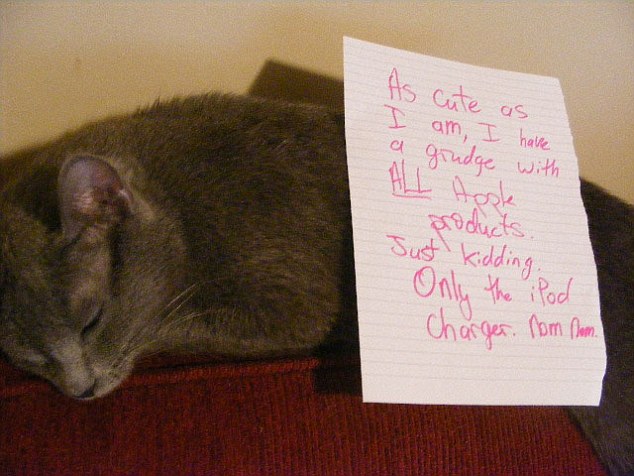 As cute as
I am, I have
a grudge with
ALL Apple
products.
Just kidding.
Only the iPod
Charger. Nom Nom.